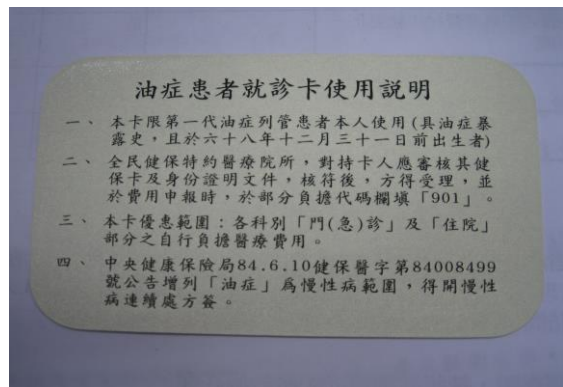 油症患者就診卡使用說明
一、本卡限第一代油症列管患者本人使用(具油症暴
露史，且於六十八年十二月三十一日前出生者)
二、全民健保特約醫療院所，對持卡人應審核其健
保卡及身份證明文件，核符後，方得受理，並
於費用申報時，於部分負擔代碼欄填「901」。
三、本卡優惠範圍：各科別「門(急)診」及「住院」
部分之自行負擔醫療費用。
四、中央健康保險局84.6.10健保醫字第84008499
號公告增列「油症」為慢性病範圍，得開慢性
病連續處方箋。